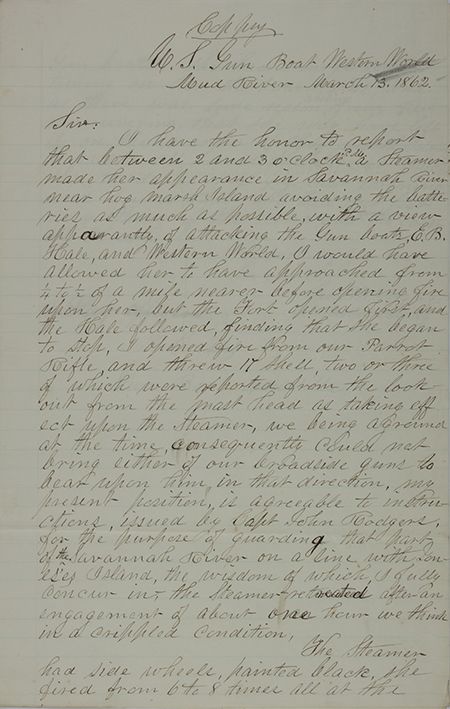 Coppy
U. S. Gun Boat Western World
Mud River March 13. 1862.
Sir:
I have the honor to report
that between 2 and 3 o'clock P.M. a Steamer
made her appearance in Savannah River
near hog Marsh Island avoiding the batte-
ries as much as possible, with a view
apparantly, of attacking the Gun boats, E. B.
Hale, and Western World, I would have
allowed her to have approached from
¼ to ½ of a mile nearer before opening fire
upon her, but the Fort opened first, and
the Hale followed, finding that she began
to stop, I opened fire from our Parrot
Rifle, and threw 17 shell, two or three
of which were reported from the look-
out from the mast head as taking eff
ect upon the Steamer, we being aground
at the time, consequently could not
bring either of our broadside guns to
bear upon him, in that direction, my
present position, is agreeable to instru-
ctions, issued by Capt John Rodgers,
for the purpose of guarding that part
of the Savannah River on a line with Jon-
es'es Island, the wisdom of which, I fully
concur in, the Steamer retreated after an
engagement of about one hour we think
in a crippled condition,
The Steamer
had side wheels, painted black, she
fired from 6 to 8 times all at the